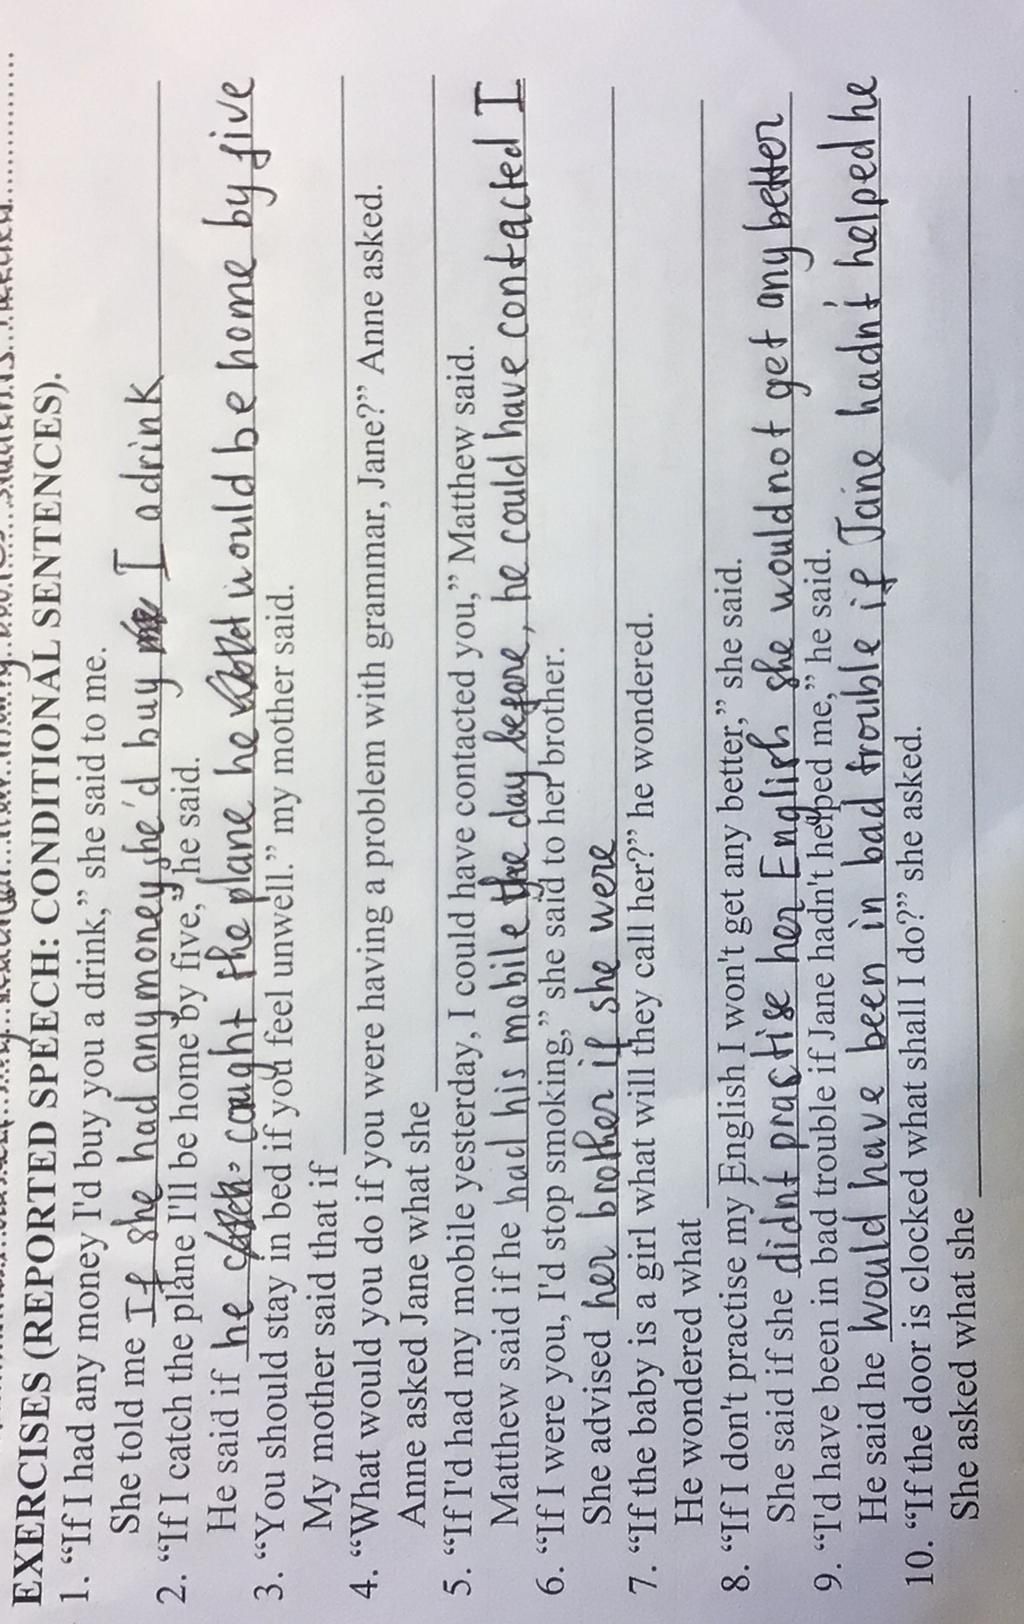 EXERCISES (REPORTED SPEECH: CONDITIONAL SENTENCES).
1. “If I had any money I'd buy you a drink,” she said to me.
She told me If she had any money she'd buy I a drink
2. “If I catch the plane I'll be home by five,” he said.
He said if he caught the plane he would be home by five
3. “You should stay in bed if you feel unwell.” my mother said.
My mother said that if
4. “What would you do if you were having a problem with grammar, Jane?” Anne asked.
Anne asked Jane what she
5. “If I'd had my mobile yesterday, I could have contacted you,” Matthew said.
Matthew said if he had his mobile the day before, he could have contacted I
6. “If I were you, I'd stop smoking,” she said to her brother.
She advised her brother if she were
7. “If the baby is a girl what will they call her?” he wondered.
He wondered what
8. “If I don't practise my English I won't get any better,” she said.
She said if she didn't practise her English she would not get any better
9. “I'd have been in bad trouble if Jane hadn't helped me,” he said.
He said he would have been in bad trouble if Jaine hadn't helped he
10. “If the door is clocked what shall I do?” she asked.
She asked what she